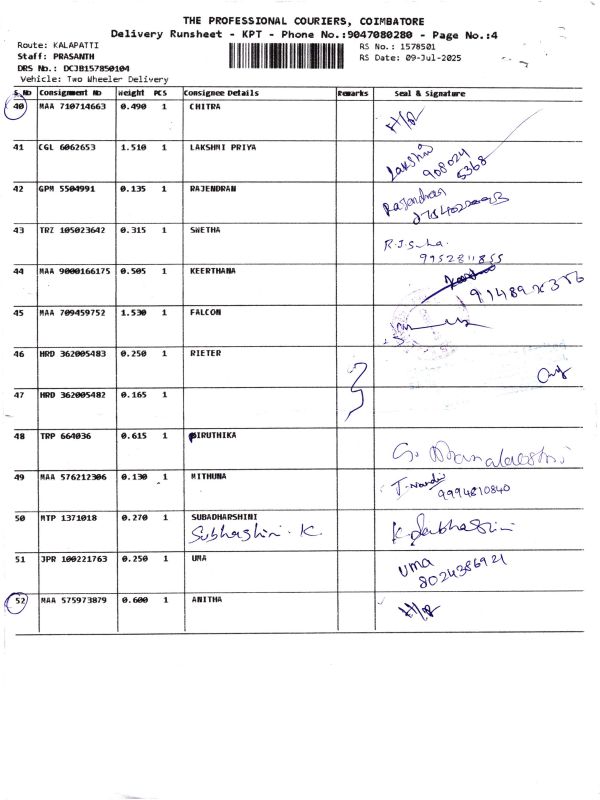 THE PROFESSIONAL COURIERS, COIMBATORE
Delivery Runsheet - KPT - Phone No.:9047080280 - Page No.:4
Route: KALAPATTI
RS No.: 1578501
Staff: PRASANTH
RS Date: 09-Jul-2025
DRS No.: DCJB157850104
Vehicle: Two Wheeler Delivery
S.No Consignment No Weight PCS Consignee Details Remarks Seal & Signature
40 MAA 710714663 0.490 1 CHITRA
41 CGL 6062653 1.510 1 LAKSHMI PRIYA Lakshmi
908024
5368
42 GPM 5504991 0.135 1 RAJENDRAN Rajendran
43 TRZ 105023642 0.315 1 SWETHA
9952811855
44 MAA 9000166175 0.505 1 KEERTHANA
45 MAA 709459752 1.530 1 FALCON
46 HRD 362005483 0.250 1 RIETER
47 HRD 362005482 0.165 1
48 TRP 664036 0.615 1 PIRUTHIKA
49 MAA 576212306 0.130 1 MITHUNA
9994810840
50 MTP 1371018 0.270 1 SUBADHARSHINI
Subhashini. K.
51 JPR 100221763 0.250 1 UMA uma
8024386921
52 MAA 575973879 0.600 1 ANITHA